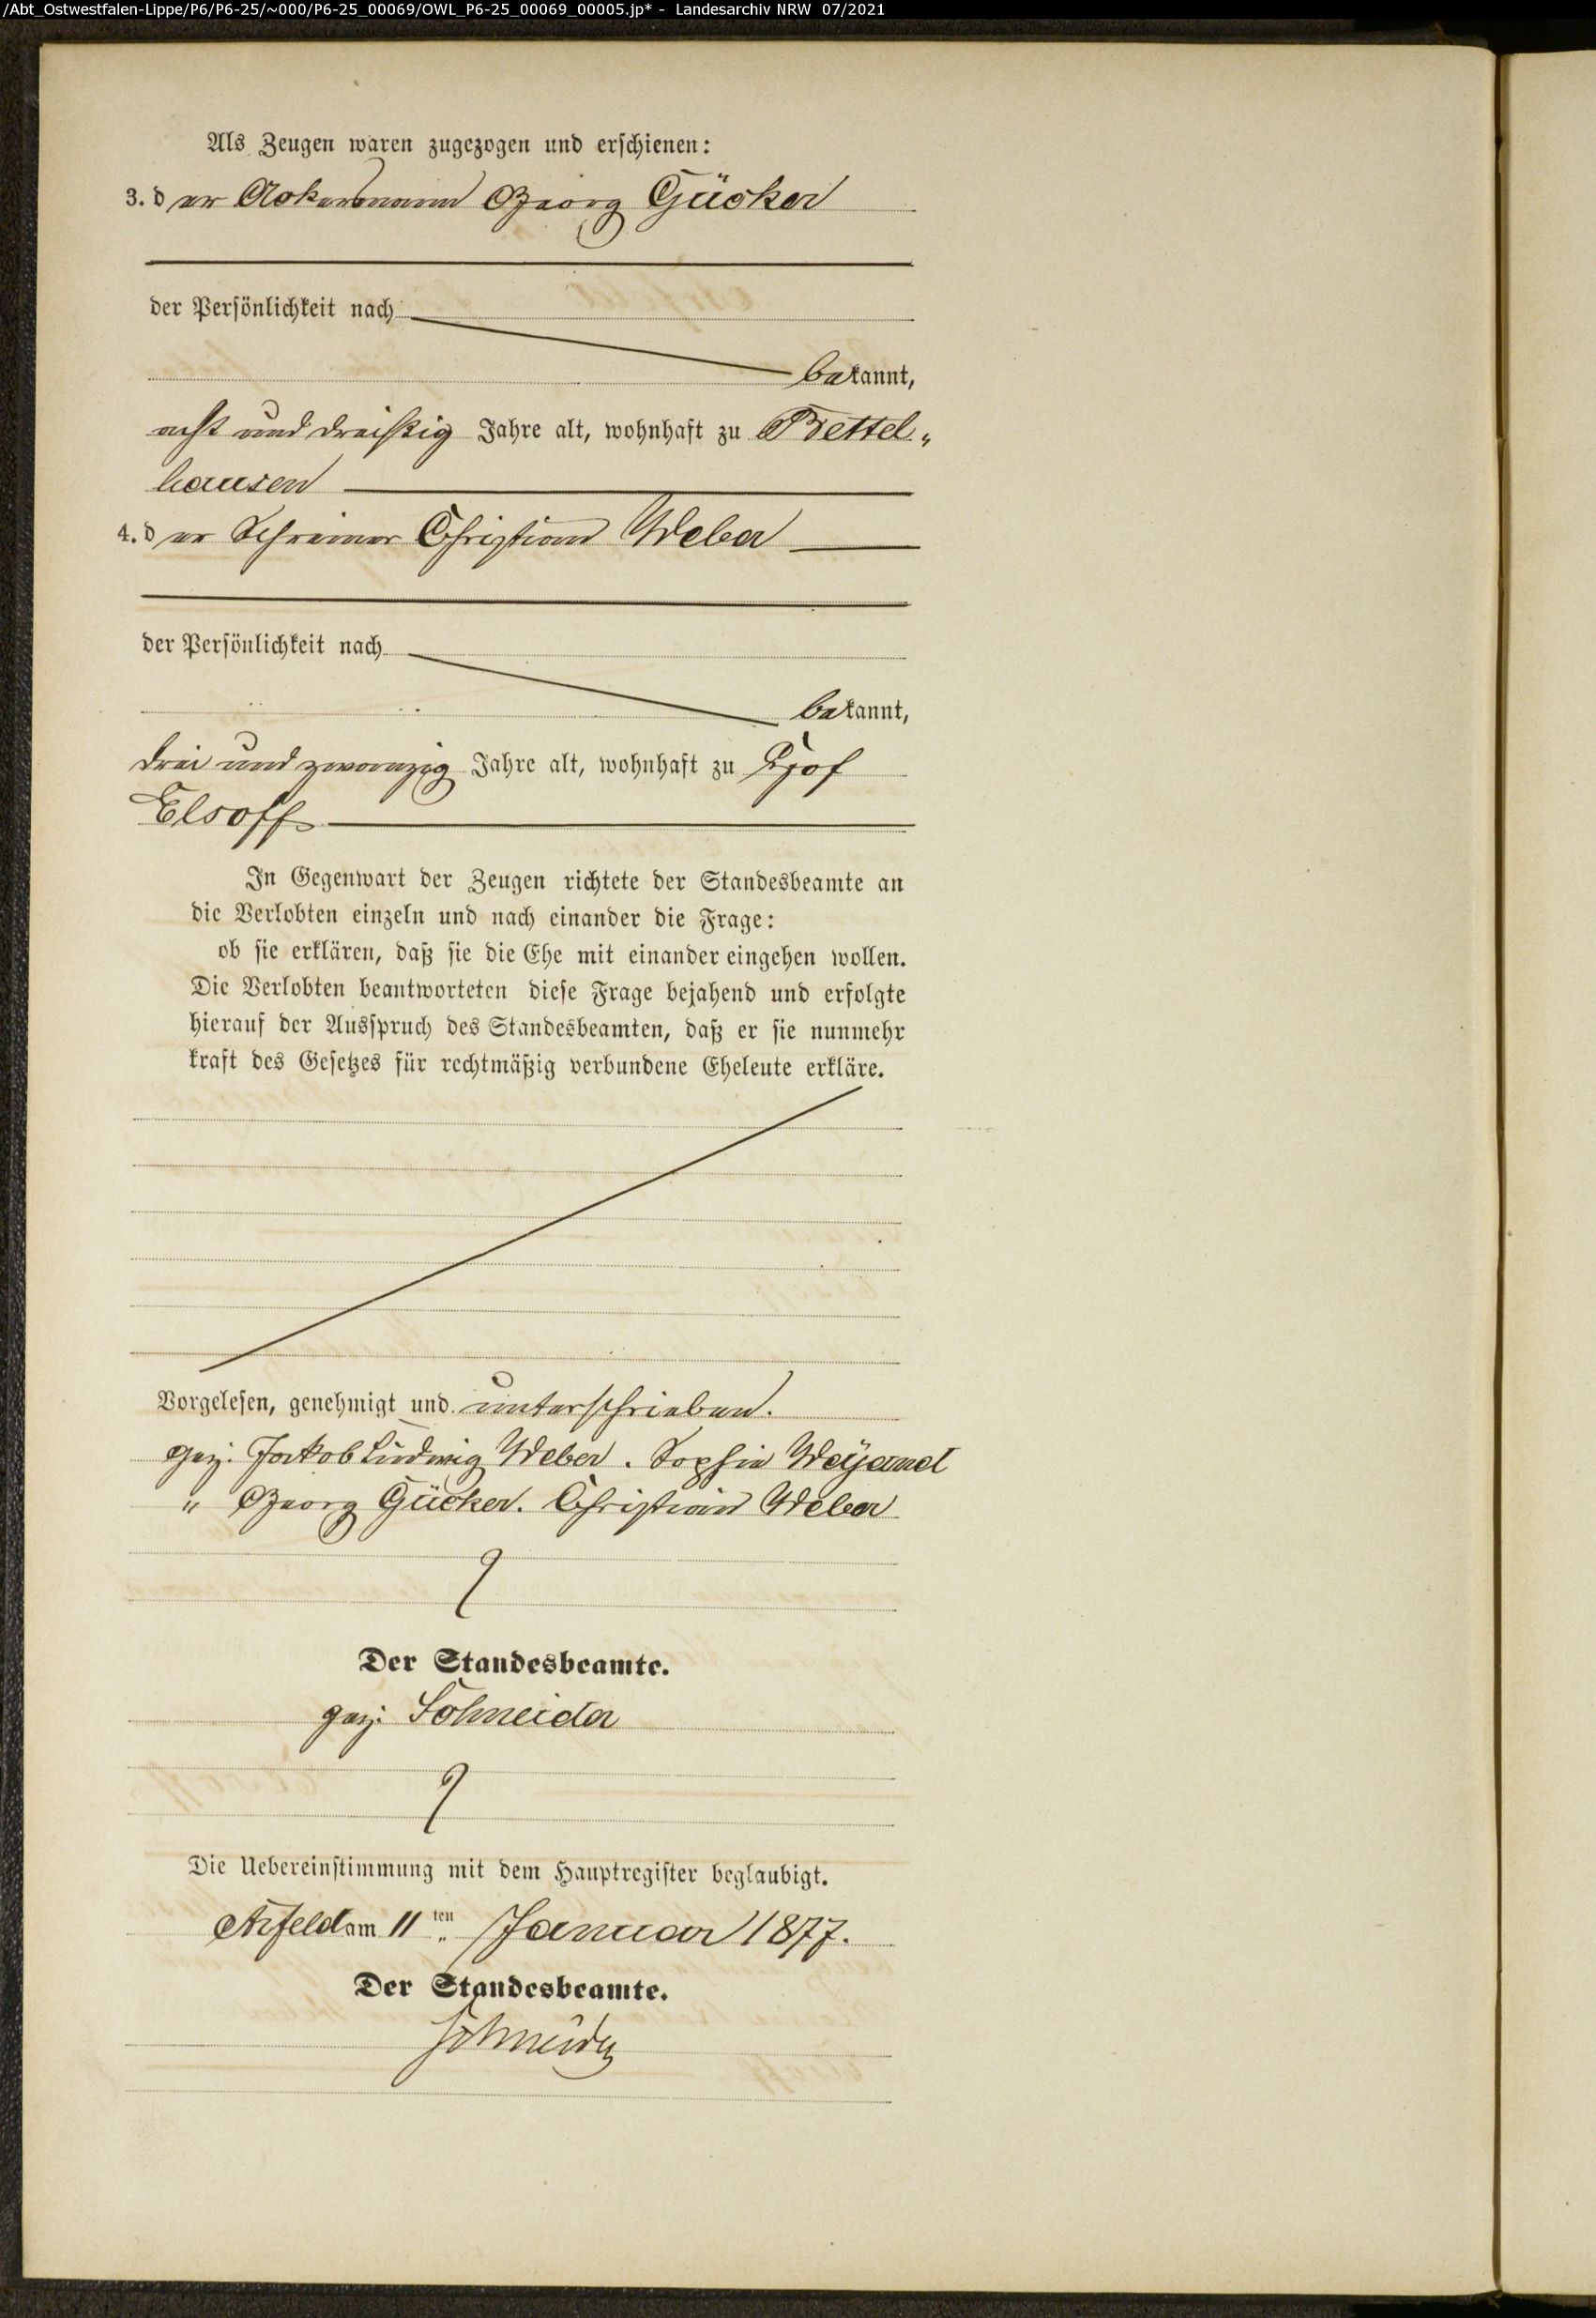 /Abt_Ostwestfalen-Lippe/P6/P6-25/~000/P6-25_00069/OWL_P6-25_00069_00005.jp* - Landesarchiv NRW 07/2021
Als Zeugen waren zugezogen und erschienen:
3. der Ackermann Georg Gücker
der Persönlichkeit nach
bekannt,
acht und dreißig Jahre alt, wohnhaft zu Bettel„
hausen
4. der Schreiner Christian Weber
der Persönlichkeit nach
bekannt,
drei und zwanzig Jahre alt, wohnhaft zu
Elsoff
In Gegenwart der Zeugen richtete der Standesbeamte an
die Verlobten einzeln und nach einander die Frage:
ob sie erklären, daß sie die Ehe mit einander eingehen wollen.
Die Verlobten beantworteten diese Frage bejahend und erfolgte
hierauf der Ausspruch des Standesbeamten, daß er sie nunmehr
kraft des Gesetzes für rechtmäßig verbundene Eheleute erkläre.
Vorgelesen, genehmigt und unterschrieben.
gez. Jakob Ludwig Weber. Sophie Weyand
" Georg Gücker. Christian Weber
Der Standesbeamte.
gez. Schneider
Die Uebereinstimmung mit dem Hauptregister beglaubigt.
Arfeld am 11ten Januar 1877.
Der Standesbeamte.
Schneider